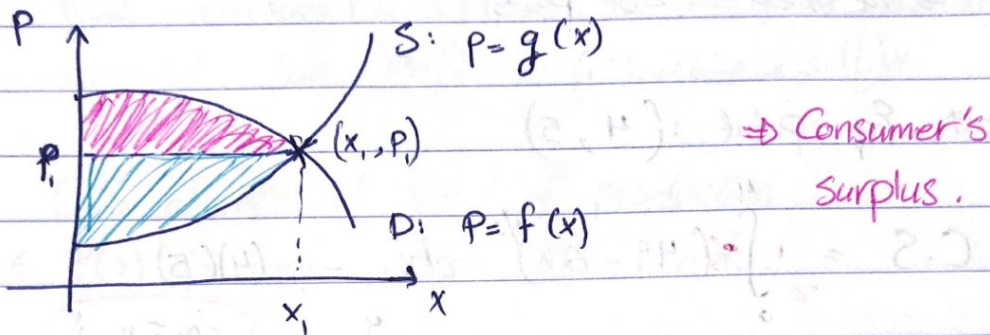 P
S: p= g(x)
p₁
(x₁, p₁)
⇒ Consumer's
surplus.
D: P= f(x)
x₁
x